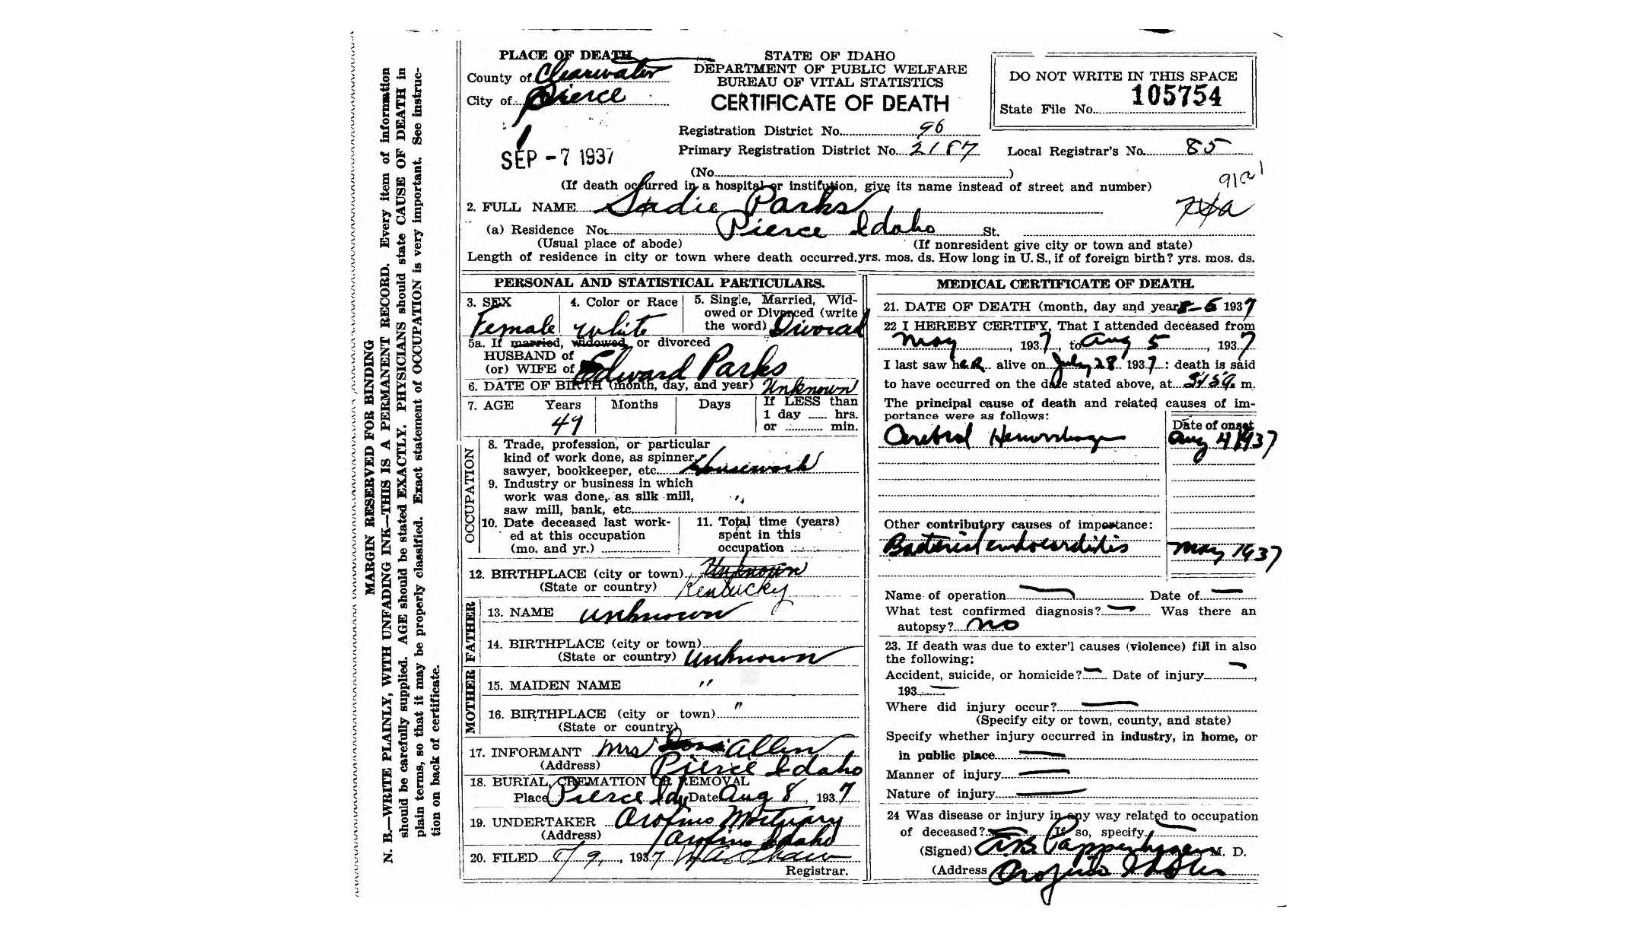 MARGIN RESERVED FOR BINDING
N. B.—WRITE PLAINLY, WITH UNFADING INK—THIS IS A PERMANENT RECORD. Every item of information
should be carefully supplied. AGE should be stated EXACTLY. PHYSICIANS should state CAUSE OF DEATH in
plain terms, so that it may be properly classified. Exact statement of OCCUPATION is very important. See instruc-
tion on back of certificate.
PLACE OF DEATH
County of Clearwater
City of Pierce
SEP -7 1937
STATE OF IDAHO
DEPARTMENT OF PUBLIC WELFARE
BUREAU OF VITAL STATISTICS
CERTIFICATE OF DEATH
DO NOT WRITE IN THIS SPACE
State File No. 105754
Registration District No. 96
Primary Registration District No. 2187
Local Registrar's No. 85
(No. )
(If death occurred in a hospital or institution, give its name instead of street and number)
2. FULL NAME Sadie Parks
(a) Residence No. Pierce Idaho St.
(Usual place of abode) (If nonresident give city or town and state)
Length of residence in city or town where death occurred. yrs. mos. ds. How long in U. S., if of foreign birth? yrs. mos. ds.
PERSONAL AND STATISTICAL PARTICULARS.
3. SEX Female
4. Color or Race white
5. Single, Married, Wid-
owed or Divorced (write
the word) Divorced
5a. If married, widowed, or divorced
HUSBAND of
(or) WIFE of Edward Parks
6. DATE OF BIRTH (month, day, and year) Unknown
7. AGE Years Months Days If LESS than
1 day ...... hrs.
or .......... min.
49
8. Trade, profession, or particular
kind of work done, as spinner,
sawyer, bookkeeper, etc. Housework
9. Industry or business in which
work was done, as silk mill,
saw mill, bank, etc. "
10. Date deceased last work-
ed at this occupation
(mo. and yr.)
11. Total time (years)
spent in this
occupation
OCCUPATION
12. BIRTHPLACE (city or town) Unknown
(State or country) Kentucky
FATHER
13. NAME unknown
14. BIRTHPLACE (city or town)
(State or country) Unknown
MOTHER
15. MAIDEN NAME "
16. BIRTHPLACE (city or town) "
(State or country)
17. INFORMANT Mrs Allen
(Address) Pierce Idaho
18. BURIAL, CREMATION OR REMOVAL
Place Pierce Ida Date Aug 8, 1937
19. UNDERTAKER Orofino Mortuary
(Address) Orofino Idaho
20. FILED 8/9, 1937
Registrar.
MEDICAL CERTIFICATE OF DEATH.
21. DATE OF DEATH (month, day and year 8-5 1937
22 I HEREBY CERTIFY, That I attended deceased from
May, 1937, to Aug 5, 1937
I last saw her alive on July 28 1937: death is said
to have occurred on the date stated above, at m.
The principal cause of death and related causes of im-
portance were as follows:
Date of onset
Cerebral Hemorrhage Aug 4 1937
Other contributory causes of importance:
Bacterial endocarditis May 1937
Name of operation Date of
What test confirmed diagnosis? Was there an
autopsy? no
23. If death was due to exter'l causes (violence) fill in also
the following:
Accident, suicide, or homicide? Date of injury ,
193
Where did injury occur?
(Specify city or town, county, and state)
Specify whether injury occurred in industry, in home, or
in public place
Manner of injury
Nature of injury
24 Was disease or injury in any way related to occupation
of deceased? If so, specify
(Signed) Pappenhagen M. D.
(Address Orofino Idaho